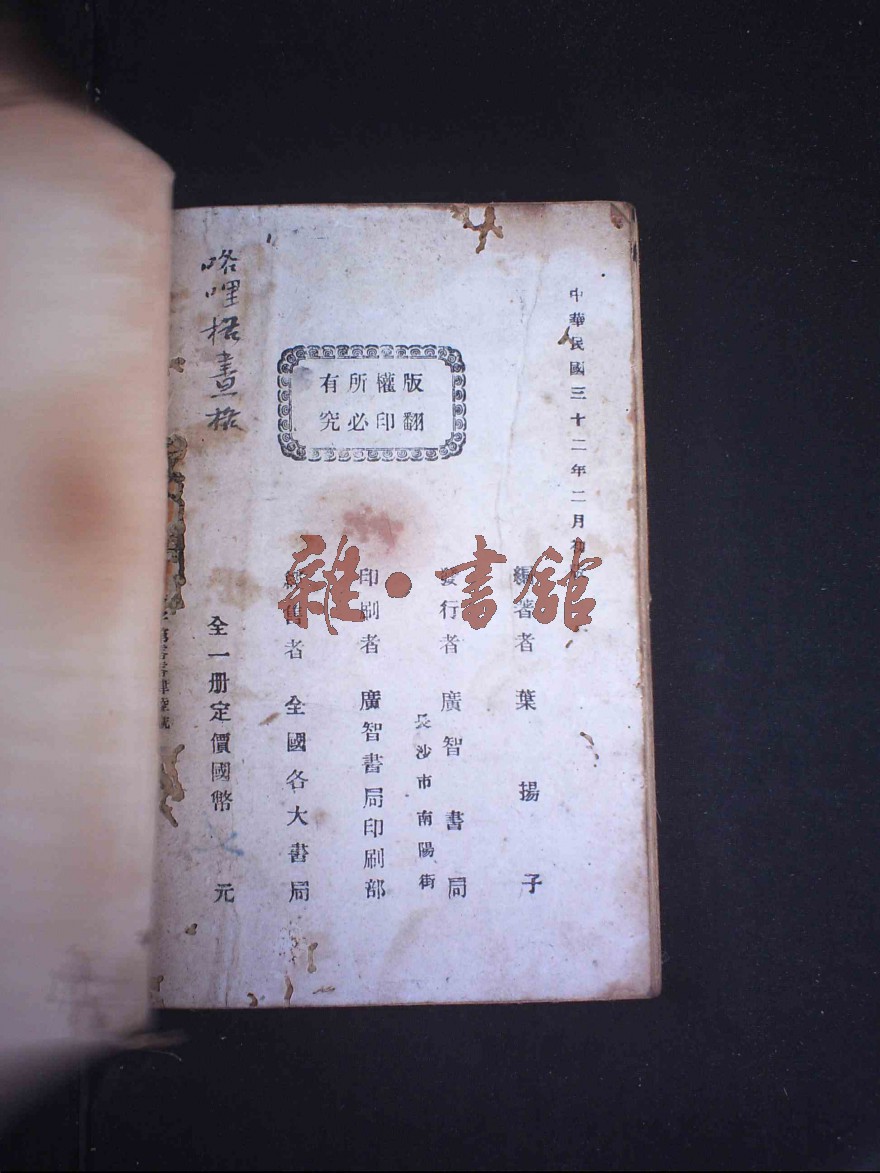 中華民國三十二年二月初版
版權所有
翻印必究
編著者 葉揚子
發行者 廣智書局
長沙市南陽街
印刷者 廣智書局印刷部
經售者 全國各大書局
全一册定價國幣 元
雜·書館